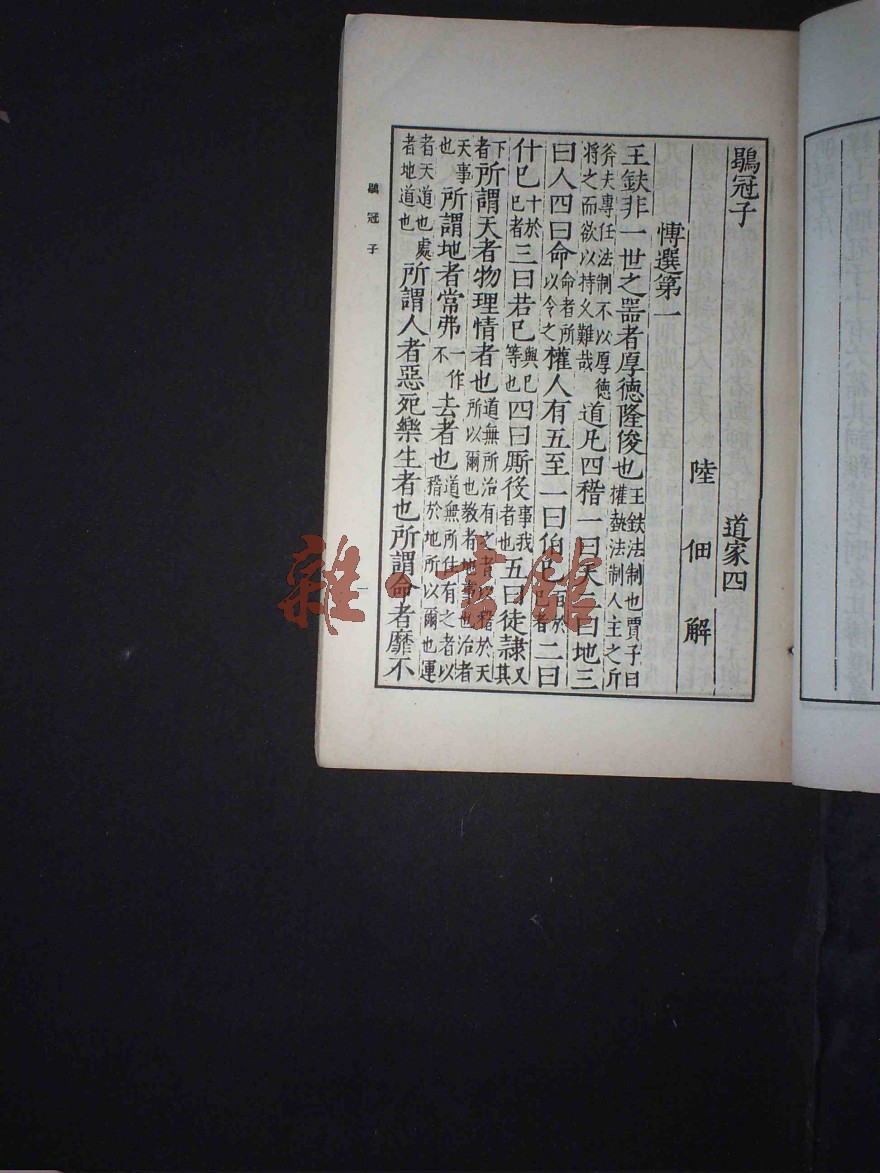 鶡冠子　道家四
陸佃解
博選第一
王鈇非一世之器者厚德隆俊也王鈇法制也賈子曰權埶法制人主之斤
斧夫專任法制不以厚德將之而欲以持久難哉道凡四稽一曰天二曰地三
曰人四曰命命者所以令之權人有五至一曰伯己百於己者二曰
什己十於己者三曰若己與己等也四曰厮役事我者也五曰徒隷又其
下者所謂天者物理情者也道無所治有之者以稽於天所以爾也教者地事也治者
天事也所謂地者常弗一作不去者也道無所住有之者以稽於地所以爾也運
者天道也處者地道也所謂人者惡死樂生者也所謂命者靡不
鶡冠子
一
雜·書館